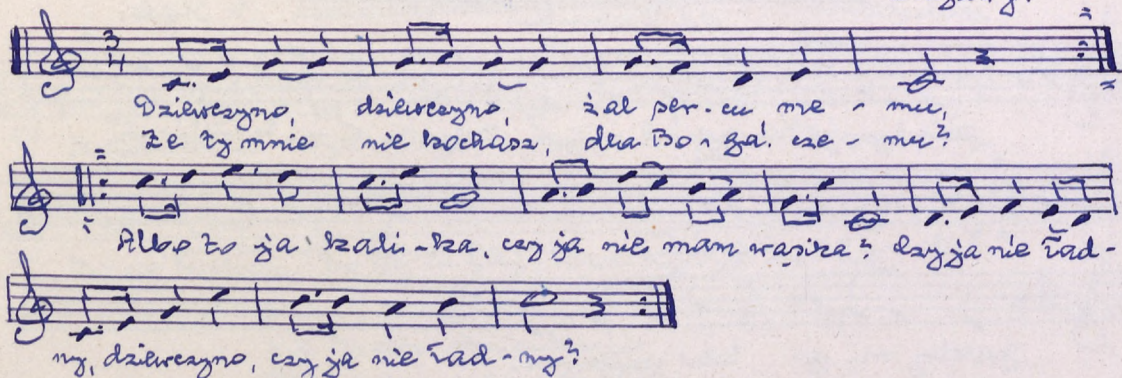 3/4
Dziewczyno, dziewczyno, żal ser-cu me-mu,
Że ty mnie nie kochasz, dla Bo-ga! cze-mu?
Albo to ja kali-ka, czy ja nie mam wąsika? czy ja nie ład-
ny, dziewczyno, czy ja nie ład-ny?